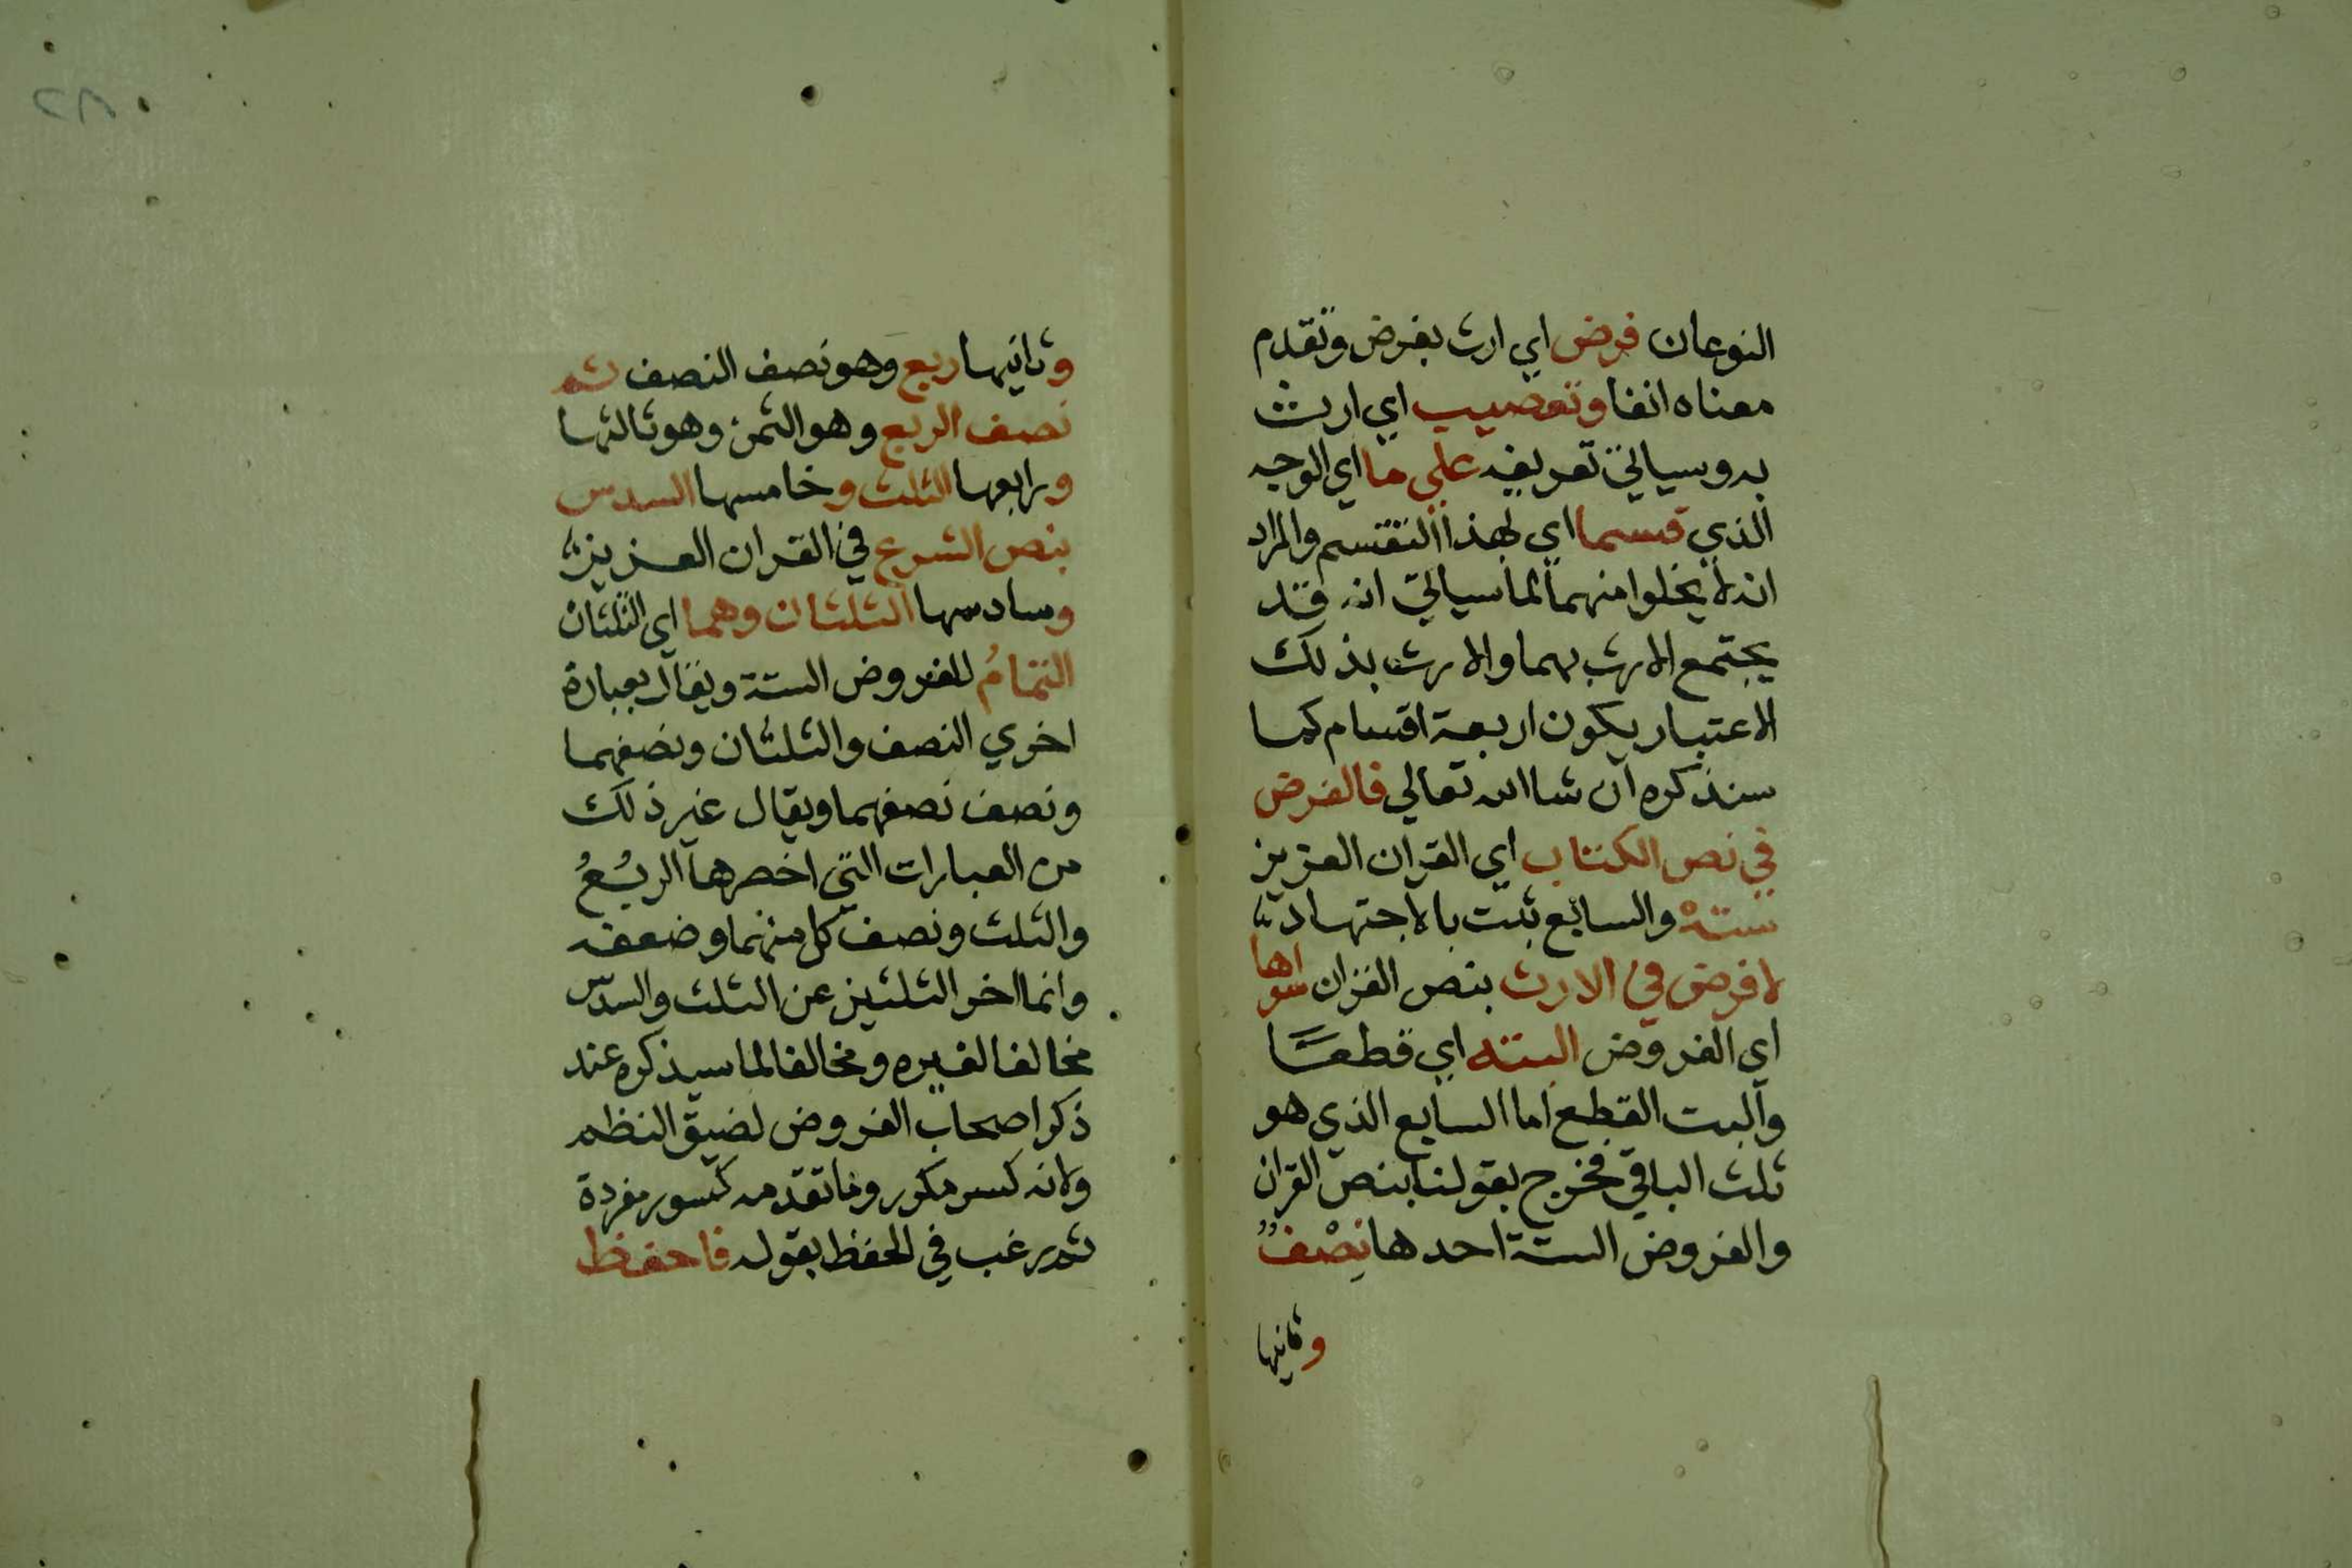 النوعان فرض اي ارث بفرض وتقدم
معناه انفا وتعصيب اي ارث
به وسياتي تعريفه علي ما اي الوجه
الذي قسما اي لهذا التقسم والمراد
انه لا يخلوا منهما لما سياتي انه قد
يجتمع الارث بهما والارث بذلك
الاعتبار يكون اربعة اقسام كما
سنذكره ان شا الله تعالي فالفرض
في نص الكتاب اي القران العزيز
سته والسابع ثبت بالاجتهاد
لا فرض في الارث بنص القران سواها
اي الفروض البته اي قطعًا
والبت القطع اما السابع الذي هو
ثلث الباقي فخرج بقولنا بنص القران
والفروض الستة احدها نِصْفٌ
وثانيها
وثانيها ربع وهو نصف النصف ثم
نصف الربع وهو الثمن وهو ثالثها
ورابعها الثلث وخامسها السدس
بنص الشرع في القران العزيز
وسادسها الثلثان وهما اي الثلثان
التمامُ للفروض الستة ويقال بعبارة
اخري النصف والثلثان ونصفهما
ونصف نصفهما ويقال غير ذلك
من العبارات التي اخصرها الربُعُ
والثلث ونصف كل منهما وضعفه
وانما اخر الثلثين عن الثلث والسدس
مخالفا لغيره ومخالفا لما سيذكره عند
ذكر اصحاب الفروض لضيق النظم
ولانه كسر مكرر وما تقدمه كسور مفردة
ثم رغب في الحفظ بقوله فاحفظ